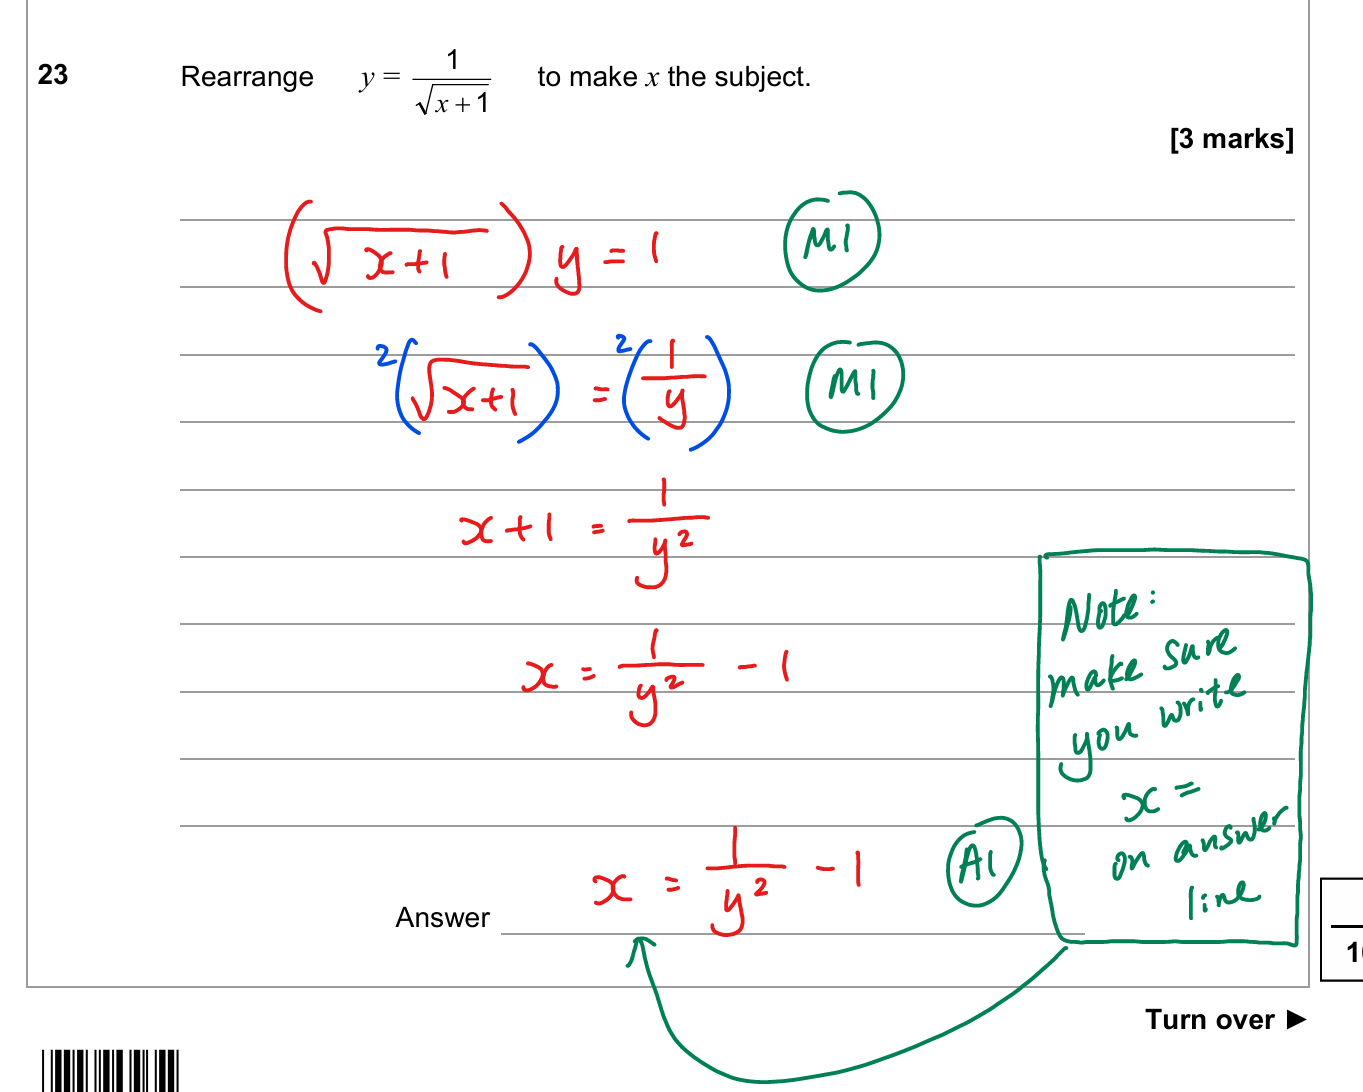 23 Rearrange y = 1/√(x + 1) to make x the subject.
[3 marks]
(√(x+1)) y = 1 M1
²(√(x+1)) = ²(1/y) M1
x+1 = 1/y²
x = 1/y² - 1
Note:
make sure
you write
x =
on answer
line
Answer x = 1/y² - 1 A1
Turn over ►